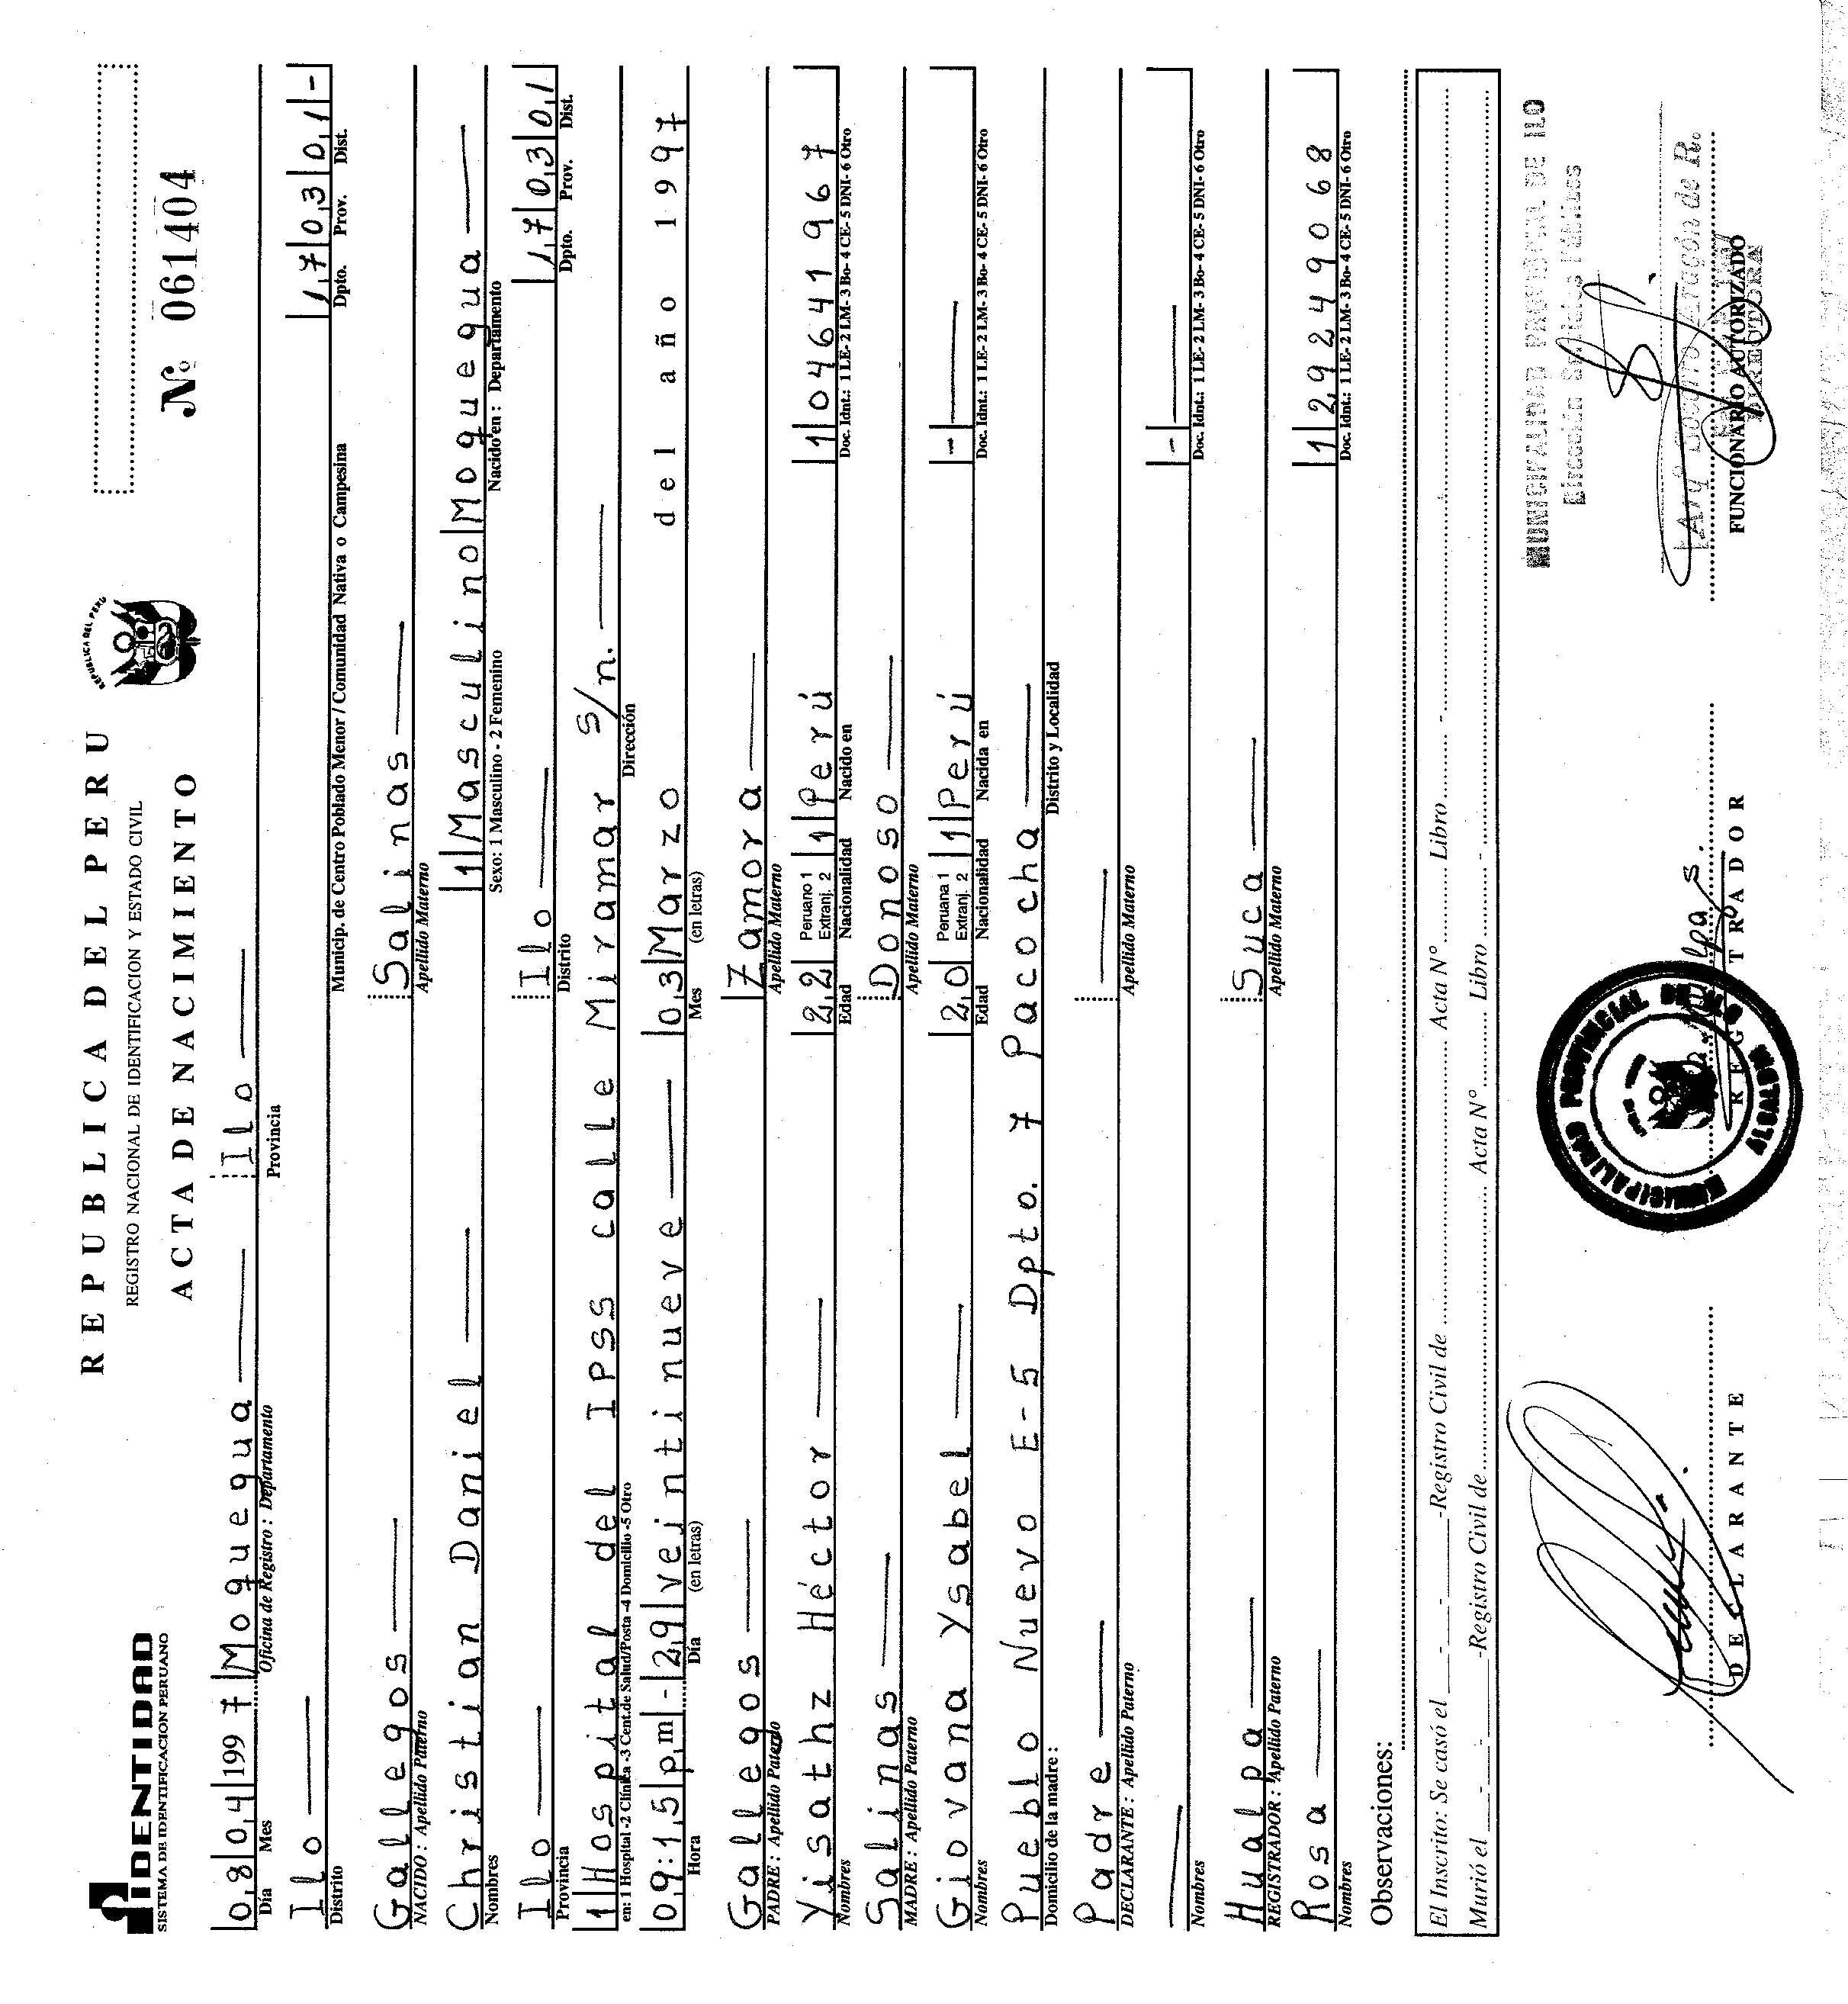 IDENTIDAD
SISTEMA DE IDENTIFICACION PERUANO
REPUBLICA DEL PERU
REGISTRO NACIONAL DE IDENTIFICACION Y ESTADO CIVIL
ACTA DE NACIMIENTO
REPUBLICA DEL PERU
Nº 061404
0,8 0,4 199 7 Moquegua Ilo
Día Mes Oficina de Registro : Departamento Provincia
Ilo 1,7 0,3 0,1 -
Distrito Municip. de Centro Poblado Menor / Comunidad Nativa o Campesina Dpto. Prov. Dist.
Gallegos Salinas
NACIDO : Apellido Paterno Apellido Materno
Christian Daniel 1 Masculino Moquegua
Nombres Sexo: 1 Masculino - 2 Femenino Nacido en : Departamento
Ilo Ilo 1,7 0,3 0,1
Provincia Distrito Dpto. Prov. Dist.
1 Hospital del IPSS calle Miramar s/n.
en: 1 Hospital -2 Clínica -3 Cent.de Salud/Posta -4 Domicilio -5 Otro Dirección
0,9:1,5 p,m - 2,9 veintinueve 0,3 Marzo del año 1997
Hora Día (en letras) Mes (en letras)
Gallegos Zamora
PADRE : Apellido Paterno Apellido Materno
Yisathz Héctor 2,2 Peruano 1 Extranj. 2 1 Perú 1 04641967
Nombres Edad Nacionalidad Nacido en Doc. Idnt.: 1 LE- 2 LM- 3 Bo- 4 CE- 5 DNI- 6 Otro
Salinas Donoso
MADRE : Apellido Paterno Apellido Materno
Giovana Ysabel 2,0 Peruana 1 Extranj. 2 1 Perú -
Nombres Edad Nacionalidad Nacida en Doc. Idnt.: 1 LE- 2 LM- 3 Bo- 4 CE- 5 DNI- 6 Otro
Pueblo Nuevo E-5 Dpto. 7 Pacocha
Domicilio de la madre : Distrito y Localidad
Padre
DECLARANTE : Apellido Paterno Apellido Materno
-
Nombres Doc. Idnt.: 1 LE- 2 LM- 3 Bo- 4 CE- 5 DNI- 6 Otro
Hualpa Suca
REGISTRADOR : Apellido Paterno Apellido Materno
Rosa 1 29249068
Nombres Doc. Idnt.: 1 LE- 2 LM- 3 Bo- 4 CE- 5 DNI- 6 Otro
Observaciones:
El Inscrito: Se casó el - - -Registro Civil de Acta Nº Libro - -
Murió el - - -Registro Civil de Acta Nº Libro -
MUNICIPALIDAD PROVINCIAL DE ILO
MUNICIPALIDAD PROVINCIAL DE ILO
DECLARANTE REGISTRADOR FUNCIONARIO AUTORIZADO
DIRECTORA